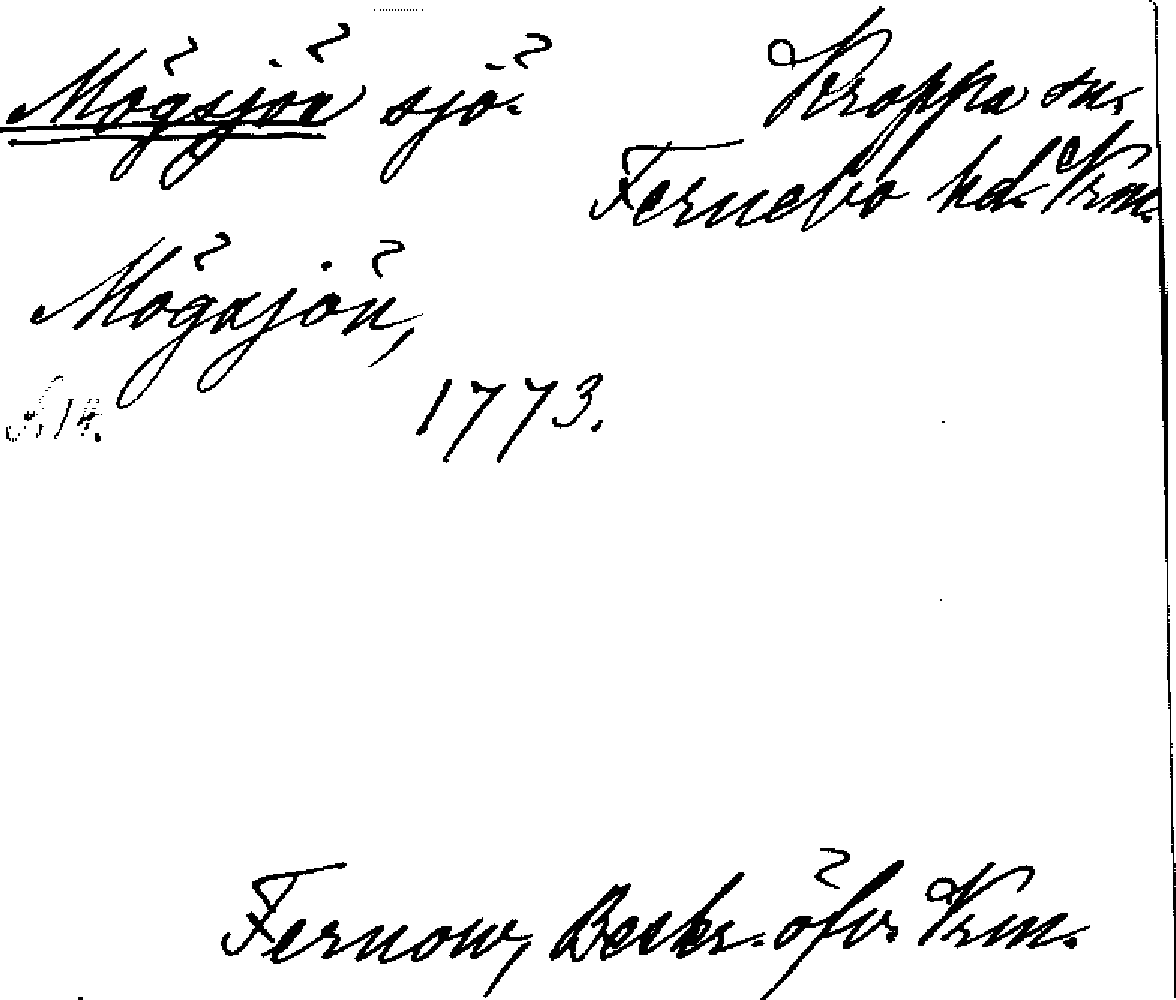 Mögsjön sjö. Kroppa sn.
Fernebo hd. Vrm.
Mögsjön,
s. 14. 1773.
Fernow, Beskr. öfvr. Vrm.